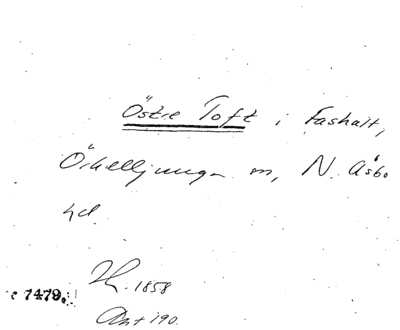 Östre Toft i Fashalt,
Örkelljunga sn, N. Åsbo
hd.
1858
c 7479.
Ant 190.